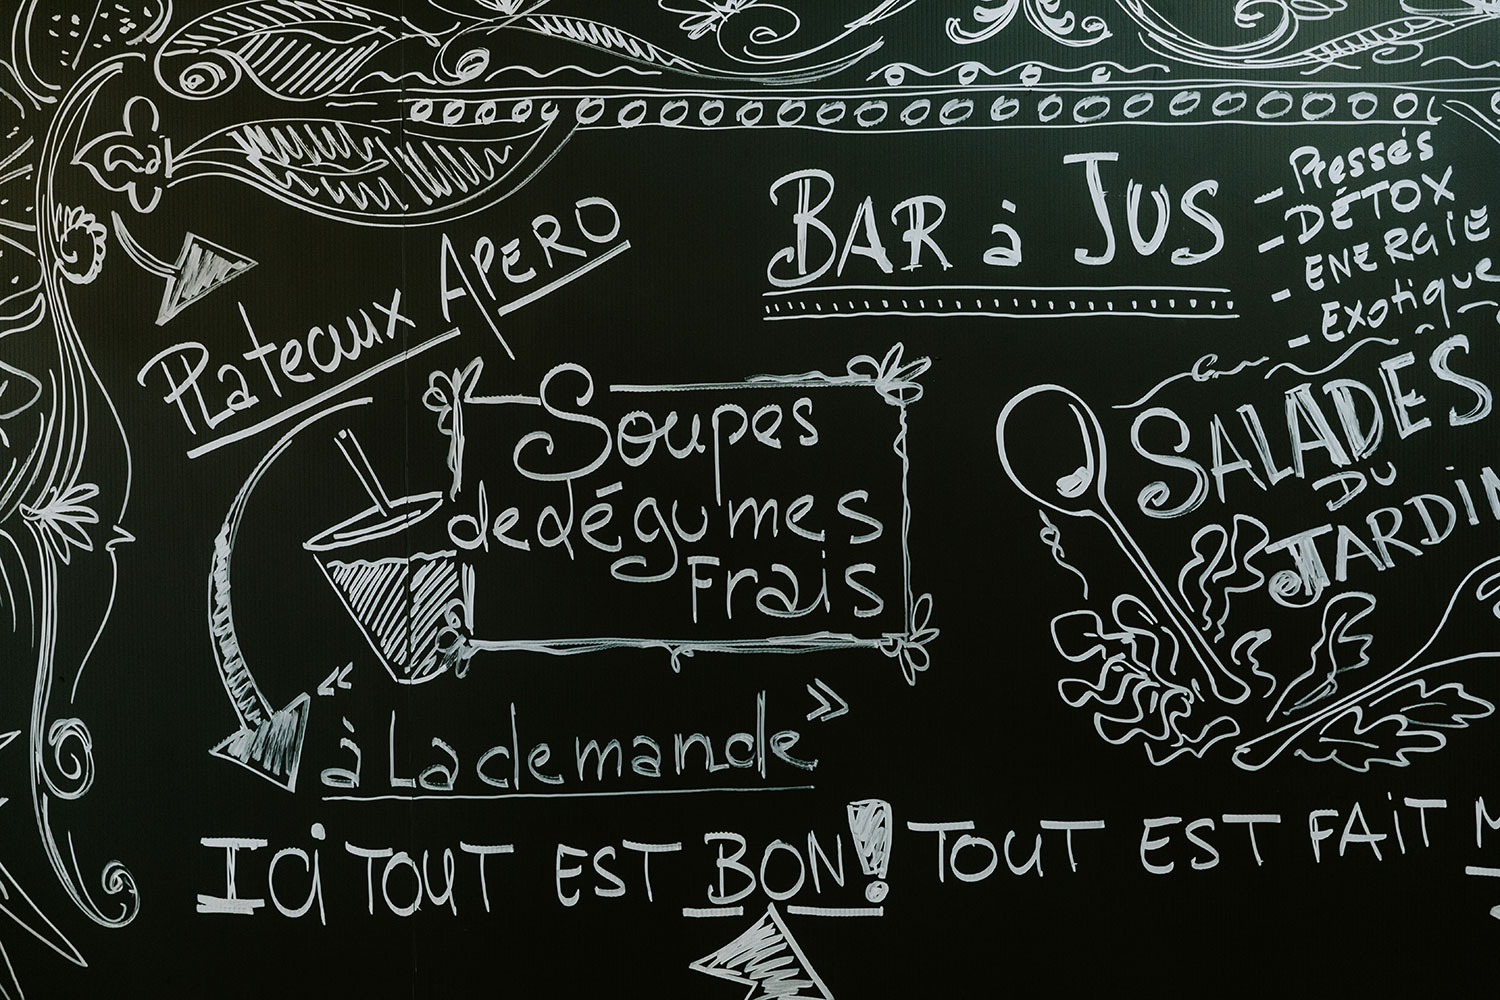 Plateaux APERO
BAR à JUS
- Pressés
- DÉTOX
- ENERGIE
- Exotique
Soupes
de légumes
Frais
« à La demande »
SALADES
DU
JARDIN
ICI TOUT EST BON! TOUT EST FAIT M